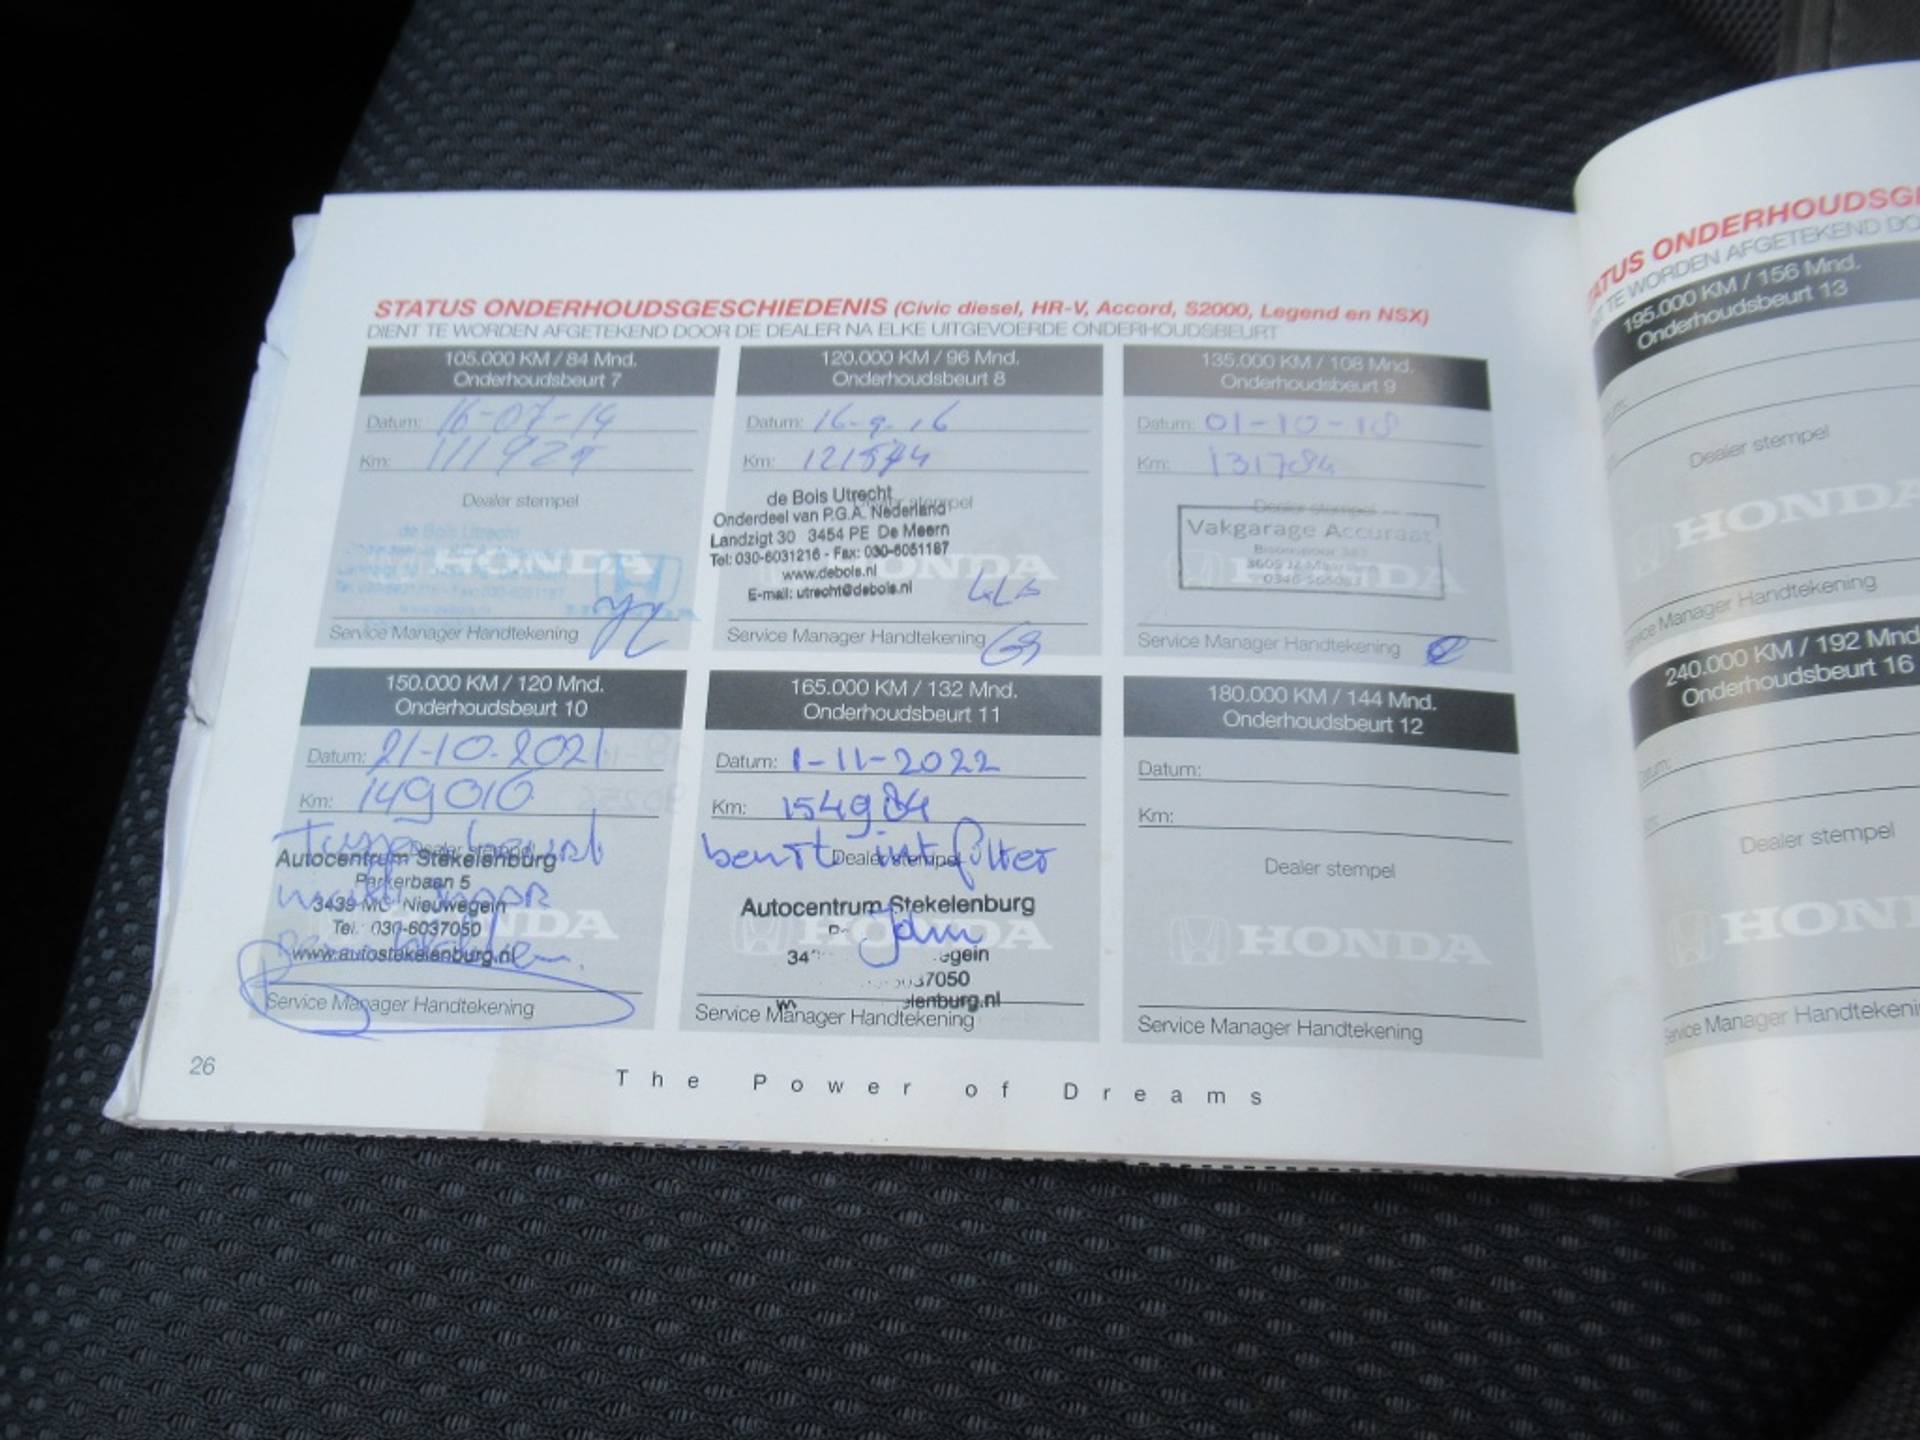 STATUS ONDERHOUDSGESCHIEDENIS (Civic diesel, HR-V, Accord, S2000, Legend en NSX)
DIENT TE WORDEN AFGETEKEND DOOR DE DEALER NA ELKE UITGEVOERDE ONDERHOUDSBEURT
105.000 KM / 84 Mnd.
Onderhoudsbeurt 7
Datum: 16-07-14
Km:
Dealer stempel
de Bois Utrecht
HONDA
Service Manager Handtekening
120.000 KM / 96 Mnd.
Onderhoudsbeurt 8
Datum: 16-9-16
Km:
Dealer stempel
de Bois Utrecht
Onderdeel van P.G.A. Nederland
Landzigt 30 3454 PE De Meern
Tel: 030-6031216 - Fax: 030-6051187
www.debois.nl
E-mail: utrecht@debois.nl
HONDA
Service Manager Handtekening
135.000 KM / 108 Mnd.
Onderhoudsbeurt 9
Datum: 01-10-18
Km: 131784
Dealer stempel
Vakgarage Accuraat
HONDA
Service Manager Handtekening
150.000 KM / 120 Mnd.
Onderhoudsbeurt 10
Datum: 21-10-2021
Km: 149010
Dealer stempel
Autocentrum Stekelenburg
Parkerbaan 5
3439 MC Nieuwegein
Tel.: 030-6037050
www.autostekelenburg.nl
HONDA
Service Manager Handtekening
165.000 KM / 132 Mnd.
Onderhoudsbeurt 11
Datum: 1-11-2022
Km: 154984
beurt int filter
Dealer stempel
Autocentrum Stekelenburg
HONDA
Service Manager Handtekening
180.000 KM / 144 Mnd.
Onderhoudsbeurt 12
Datum:
Km:
Dealer stempel
HONDA
Service Manager Handtekening
26
The Power of Dreams
TATUS ONDERHOUDSG
TE WORDEN AFGETEKEND DO
195.000 KM / 156 Mnd.
Onderhoudsbeurt 13
Dealer stempel
HONDA
Service Manager Handtekening
240.000 KM / 192 Mnd
Onderhoudsbeurt 16
Dealer stempel
HON
Service Manager Handtekeni